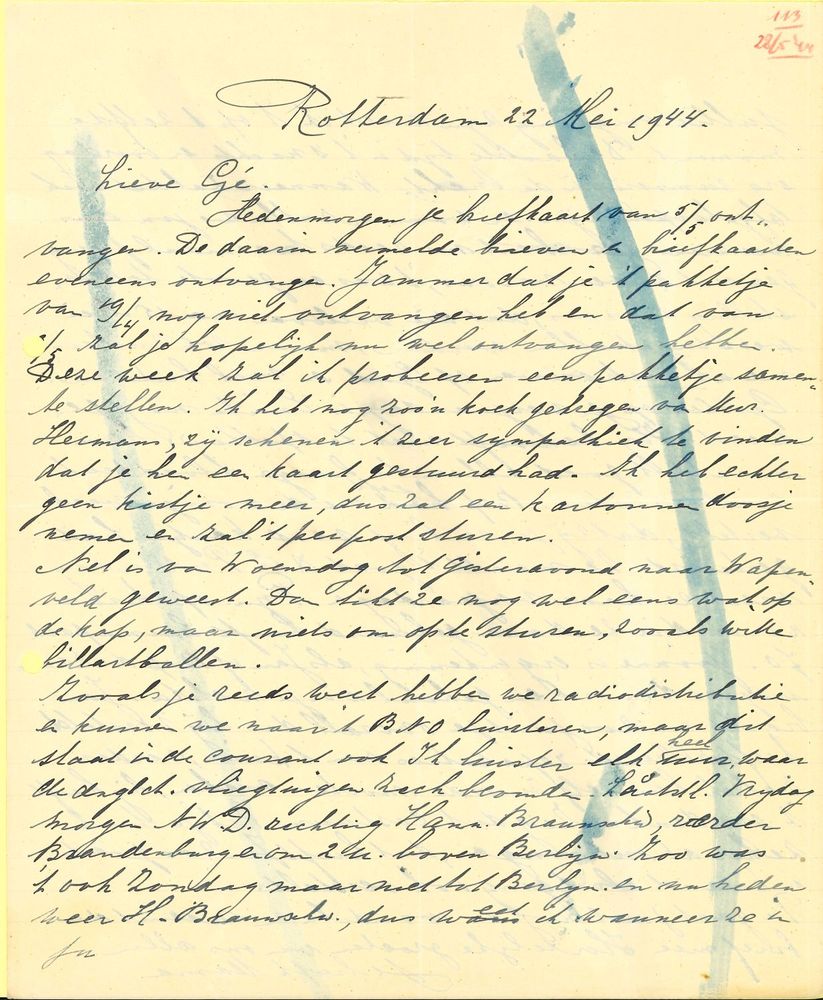 113
22/5 '44
Rotterdam 22 Mei 1944.
Lieve Gé.
Hedenmorgen je briefkaart van 5/5 ont„
vangen. De daarin vermelde brieven en briefkaarten
eveneens ontvangen. Jammer dat je 't pakketje
van 19/4 nog niet ontvangen heb en dat van
1/5 zal je hopelijk nu wel ontvangen hebben.
Deze week zal ik probeeren een pakketje samen„
te stellen. Ik heb nog zoo'n koek gekregen van
Hermans, zij schenen 't zeer sympathiek te vinden
dat je hen een kaart gestuurd had. Ik heb echter
geen kistje meer, dus zal een kartonnen doosje
nemen en zal 't per post sturen.
Nel is van Woensdag tot Gisteravond naar Wapen„
veld geweest. Dan tikt ze nog wel eens wat op
de kop, maar niets om op te sturen, zooals witte
billartballen.
Zooals je reeds weet hebben we radiodistributie
en kunnen we naar 't BNO luisteren, maar dit
staat in de courant ook Ik luister elk heel uur, waar
de vliegtuigen zich bevonden. Laatstl. Vrijdag
morgen N.W.D. richting Hann. Braunschw,
Brandenburg en om 2 u. boven Berlijn. Zoo was
't ook Zondag maar niet tot Berlyn. en nu heden
weer H. Braunschw., dus weet ik wanneer ze in